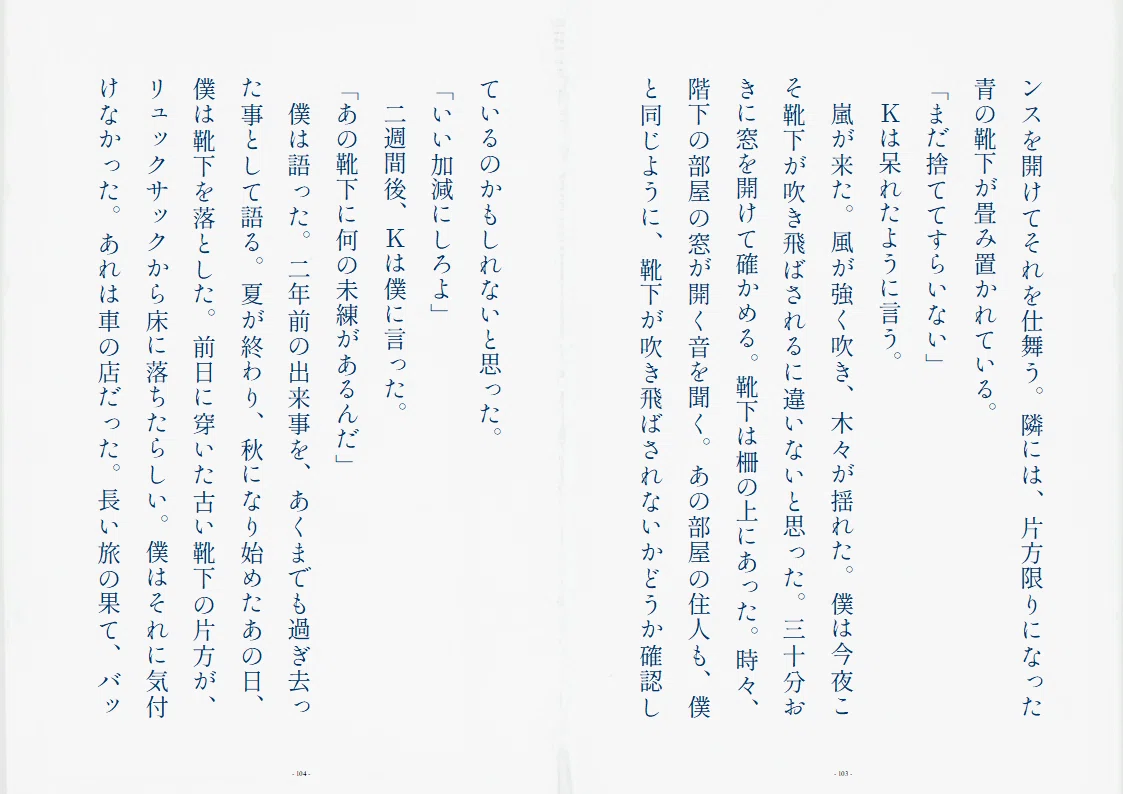 ンスを開けてそれを仕舞う。隣には、片方限りになった
青の靴下が畳み置かれている。
「まだ捨ててすらいない」
　Ｋは呆れたように言う。
　嵐が来た。風が強く吹き、木々が揺れた。僕は今夜こ
そ靴下が吹き飛ばされるに違いないと思った。三十分お
きに窓を開けて確かめる。靴下は柵の上にあった。時々、
階下の部屋の窓が開く音を聞く。あの部屋の住人も、僕
と同じように、靴下が吹き飛ばされないかどうか確認し
- 103 -
ているのかもしれないと思った。
「いい加減にしろよ」
　二週間後、Ｋは僕に言った。
「あの靴下に何の未練があるんだ」
　僕は語った。二年前の出来事を、あくまでも過ぎ去っ
た事として語る。夏が終わり、秋になり始めたあの日、
僕は靴下を落とした。前日に穿いた古い靴下の片方が、
リュックサックから床に落ちたらしい。僕はそれに気付
けなかった。あれは車の店だった。長い旅の果て、バッ
- 104 -